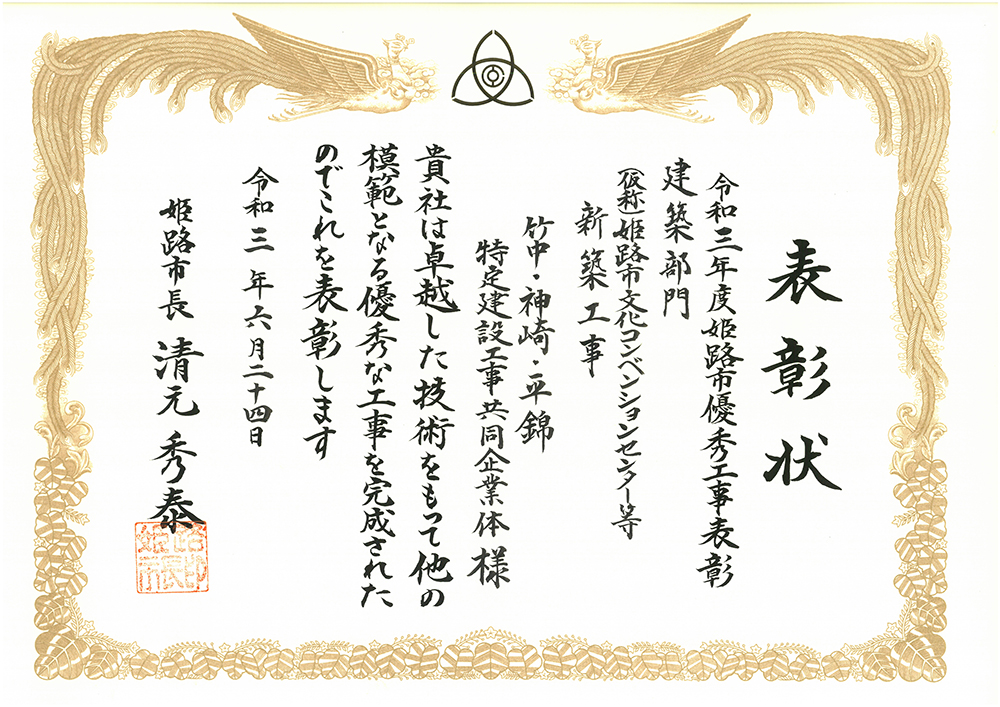 表彰状
令和三年度姫路市優秀工事表彰
建築部門
(仮称)姫路市文化コンベンションセンター等
新築工事
竹中・神崎・平錦
特定建設工事共同企業体 様
貴社は卓越した技術をもって他の
模範となる優秀な工事を完成された
のでこれを表彰します
令和三年六月二十四日
姫路市長 清元秀泰
姫路市長印